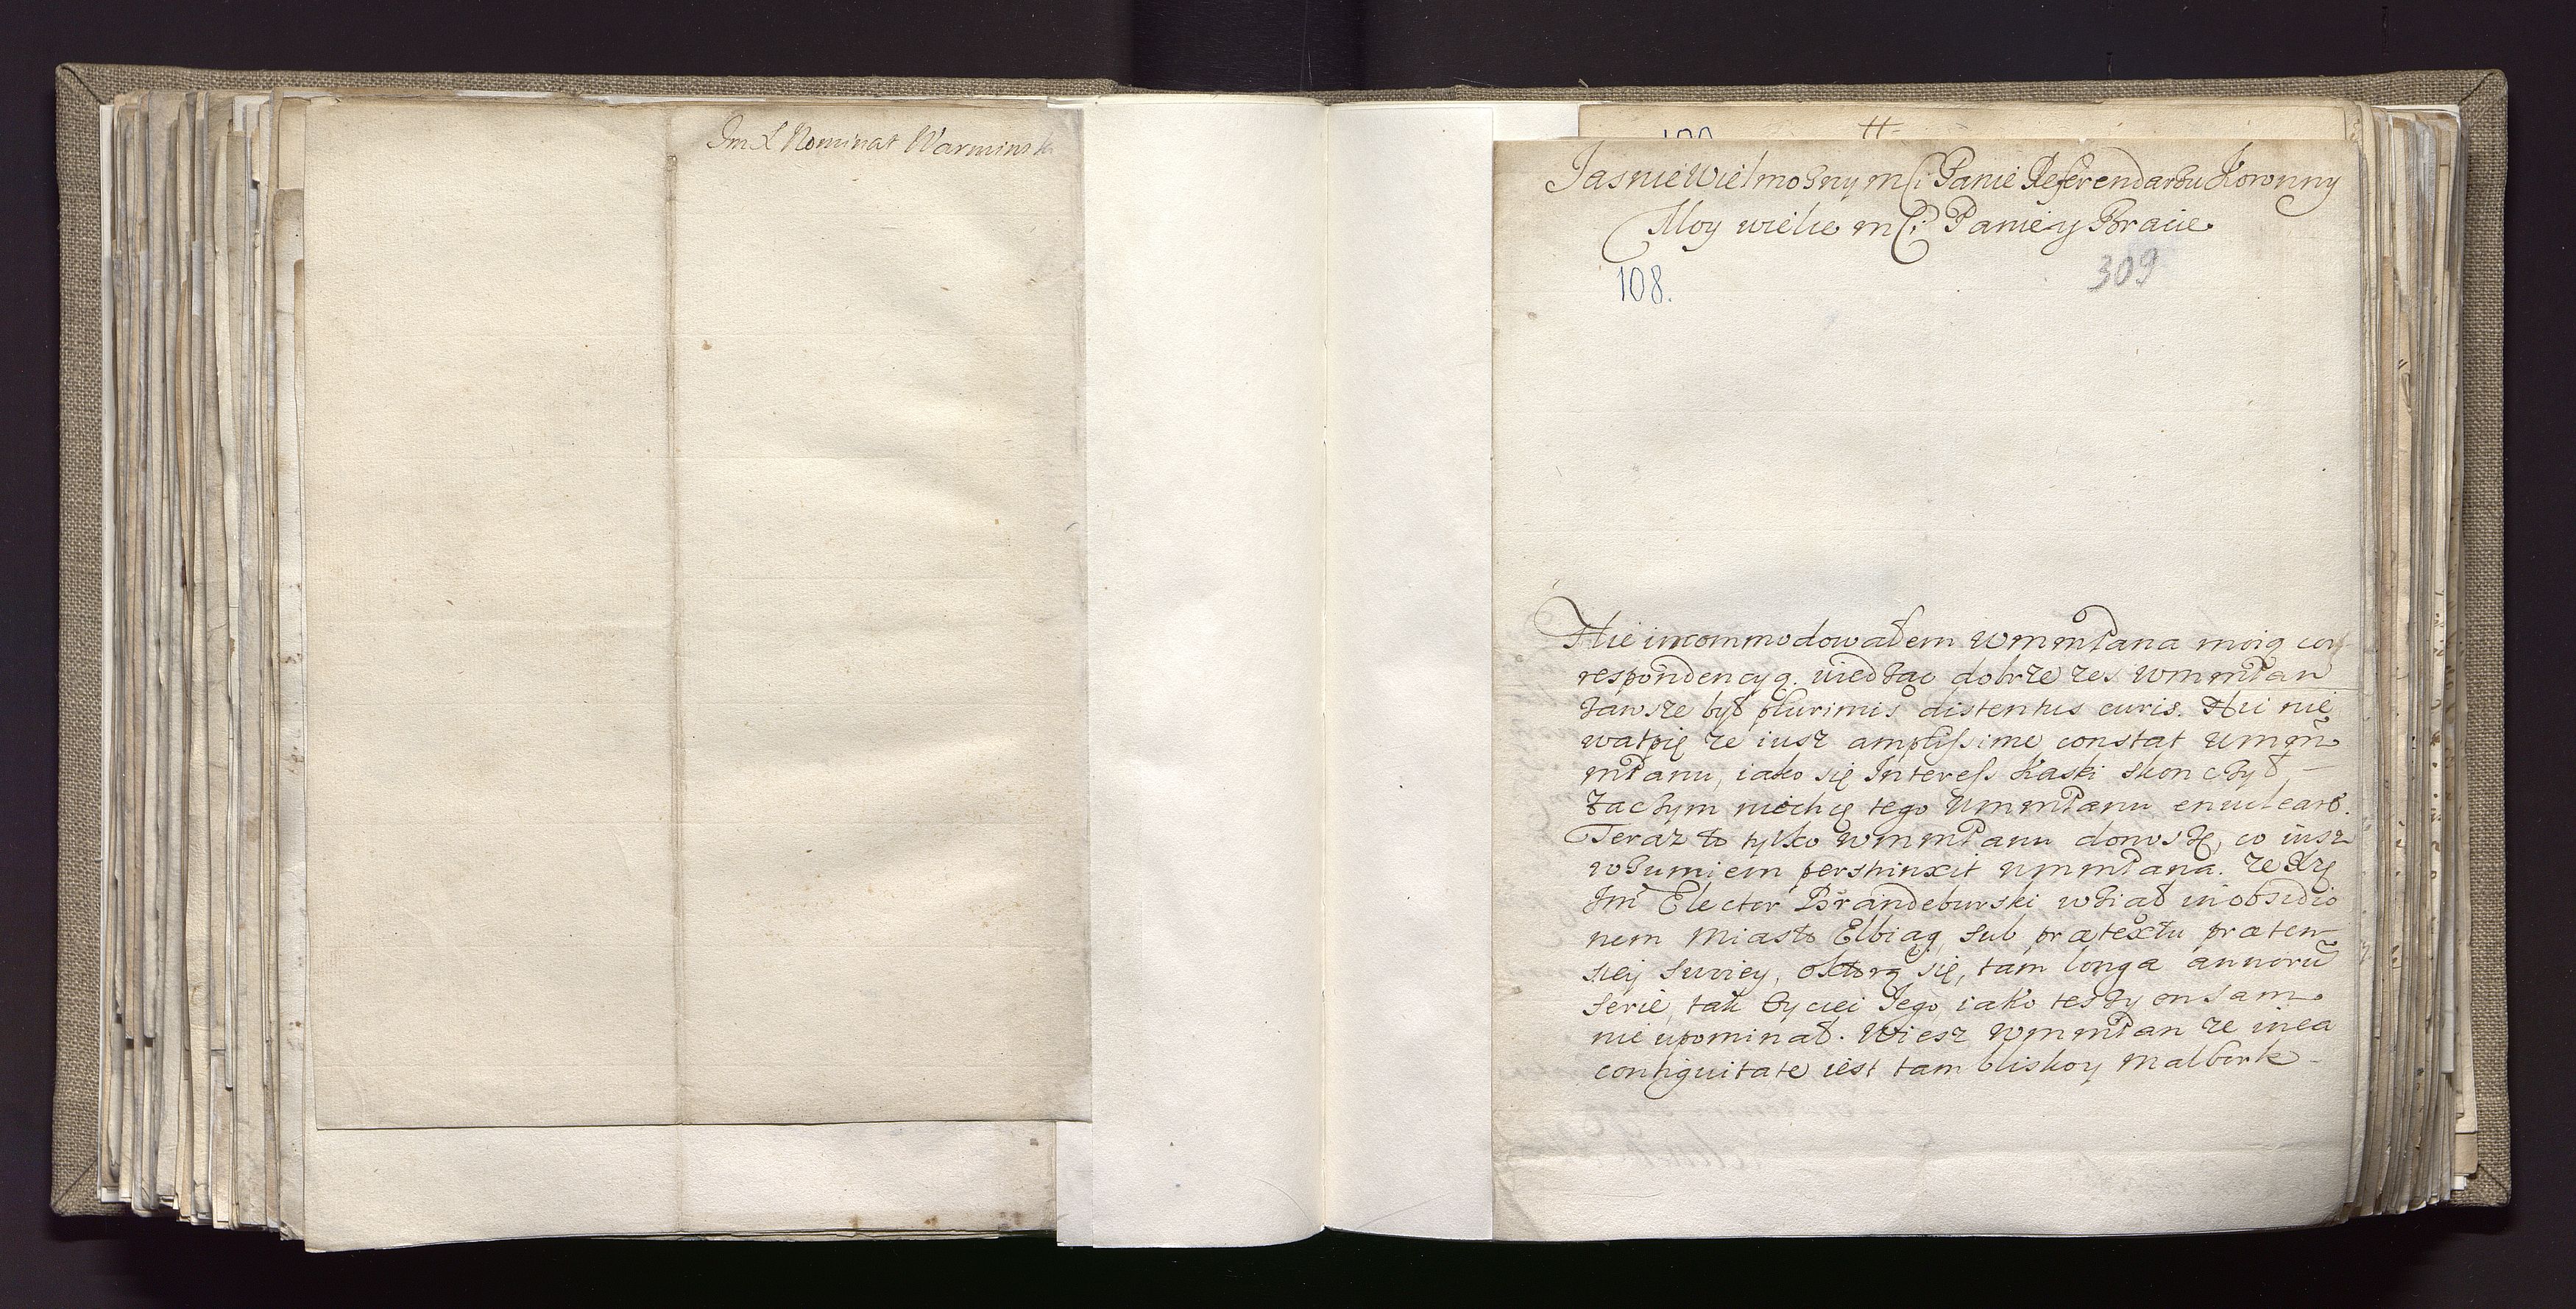 Im X Nominat Warminsk
Jasnie Wielmozny mCi Panie Referendarzu Koronny
Moy wielce mCi Panie y Bracie
108.
309
Nie incommodowałem WmmPana moią cor
respondencyą. wiedząc dobrze zes WmmPan
zawsze był plurimis distentus curis. Nic nie
wątpię ze iusz amplissime constat Wmm
mPanu, iako się Interess Kaski skonczył,
zaczym niechcę tego WmmPanu enucleare.
Teraz to tylko WmmPanu donoszę, co iusz
rozumiem perstrinxit WmmPana. ze Xże
Im Elector Brandeburski wział in obsidio
nem Miasto Elbiąg, sub prætextu præten
siey swoiey, oktorą się, tam longa annorũ
serie, tak Oyciei Jego, iako teszy on sam
nie upominał. Wiesz WmmPan ze in ea
contiguitate iest tam blisko y Malbork